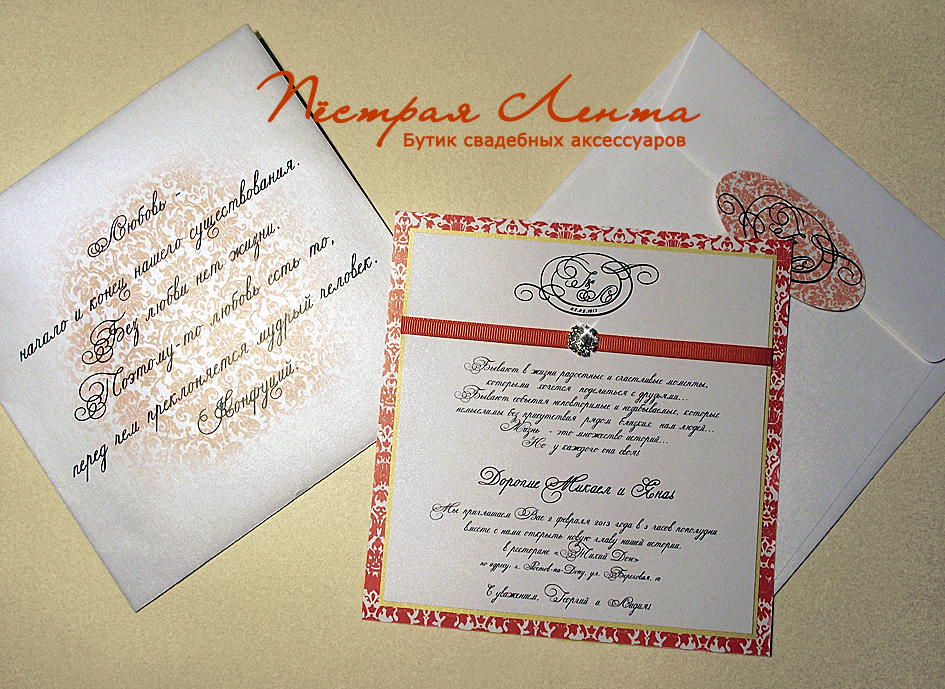 Пёстрая Лента
Бутик свадебных аксессуаров
Любовь -
начало и конец нашего существования.
Без любви нет жизни.
Поэтому-то любовь есть то,
перед чем преклоняется мудрый человек.
Конфуций.
Бывают в жизни радостные и счастливые моменты,
которыми хочется поделиться с друзьями...
Бывают события неповторимые и незабываемые, которые
немыслимы без присутствия рядом близких нам людей...
Жизнь - это множество историй...
Но у каждого она своя!
Дорогие Микаел и Яна!
Мы приглашаем Вас 2 февраля 2013 года в 3 часов пополудни
вместе с нами открыть новую главу нашей истории.
в ресторане «Тихий Дон»
по адресу: г. Ростов-на-Дону, ул. Береговая, 10
С уважением, Георгий и Лидия!